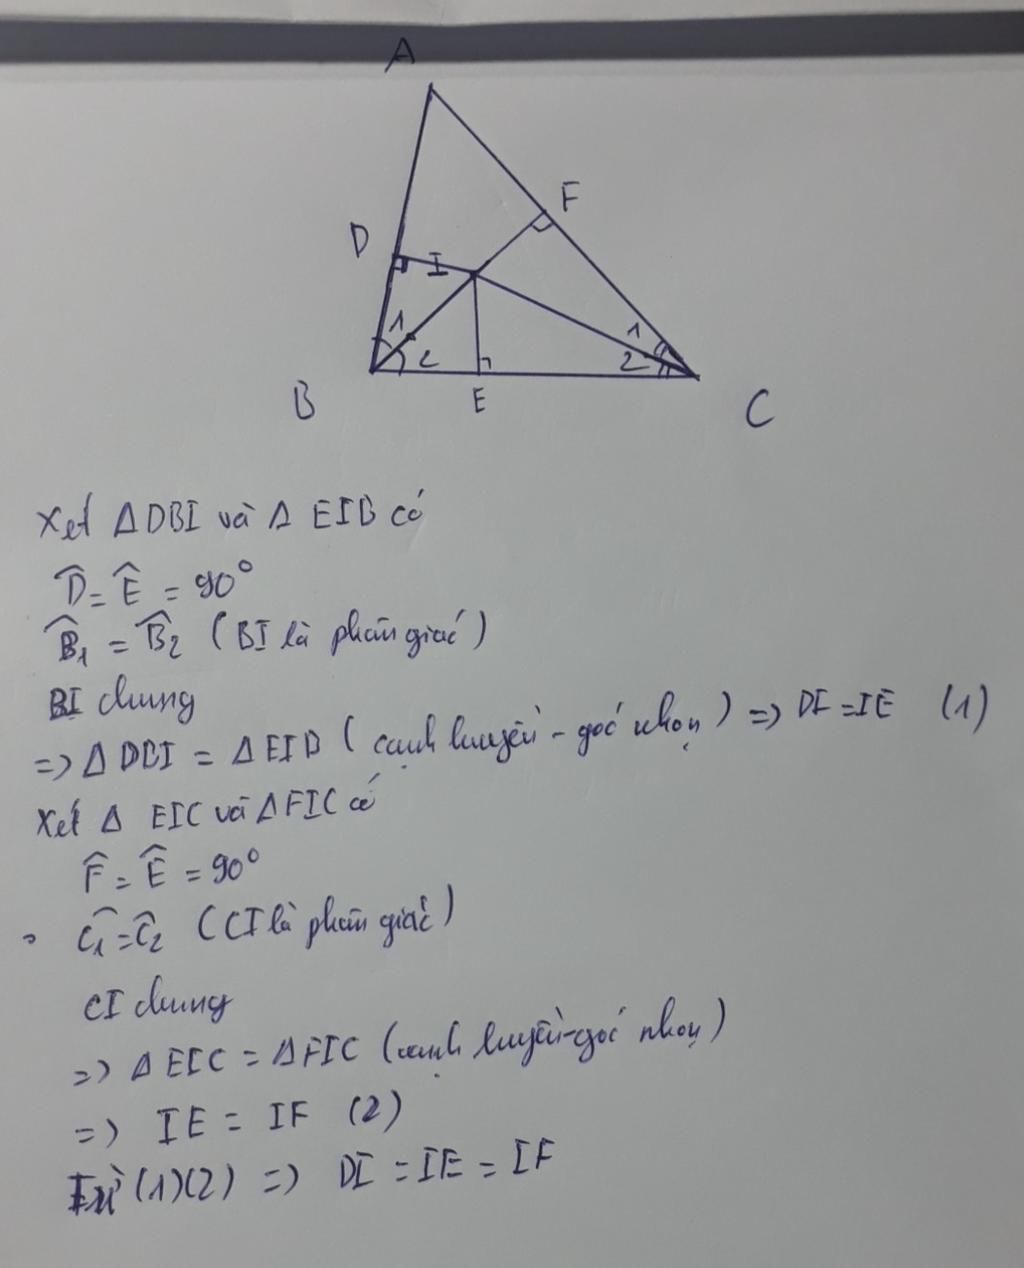 A
F
D
I
1
1
2
2
B
E
C
Xét Δ DBI và Δ EIB có
D̂ = Ê = 90°
B̂₁ = B̂₂ (BI là phân giác)
BI chung
=> Δ DBI = Δ EIB (cạnh huyền - góc nhọn) => DI = IE (1)
Xét Δ EIC và Δ FIC có
F̂ = Ê = 90°
Ĉ₁ = Ĉ₂ (CI là phân giác)
CI chung
=> Δ EIC = Δ FIC (cạnh huyền - góc nhọn)
=> IE = IF (2)
Từ (1)(2) => DI = IE = IF